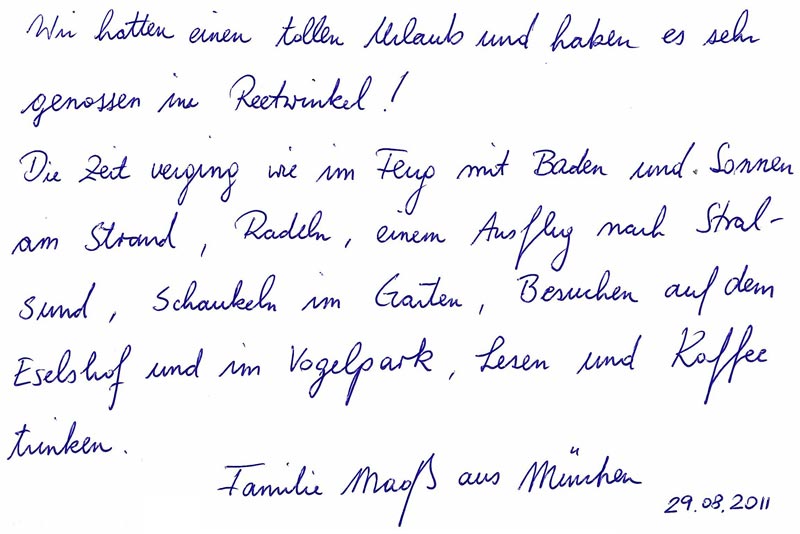 Wir hatten einen tollen Urlaub und haben es sehr
genossen im Reetwinkel!
Die Zeit verging wie im Flug mit Baden und Sonnen
am Strand, Radeln, einem Ausflug nach Stral-
sund, Schaukeln im Garten, Besuchen auf dem
Eselshof und im Vogelpark, Lesen und Kaffee
trinken.
Familie Maaß aus München
29.08.2011